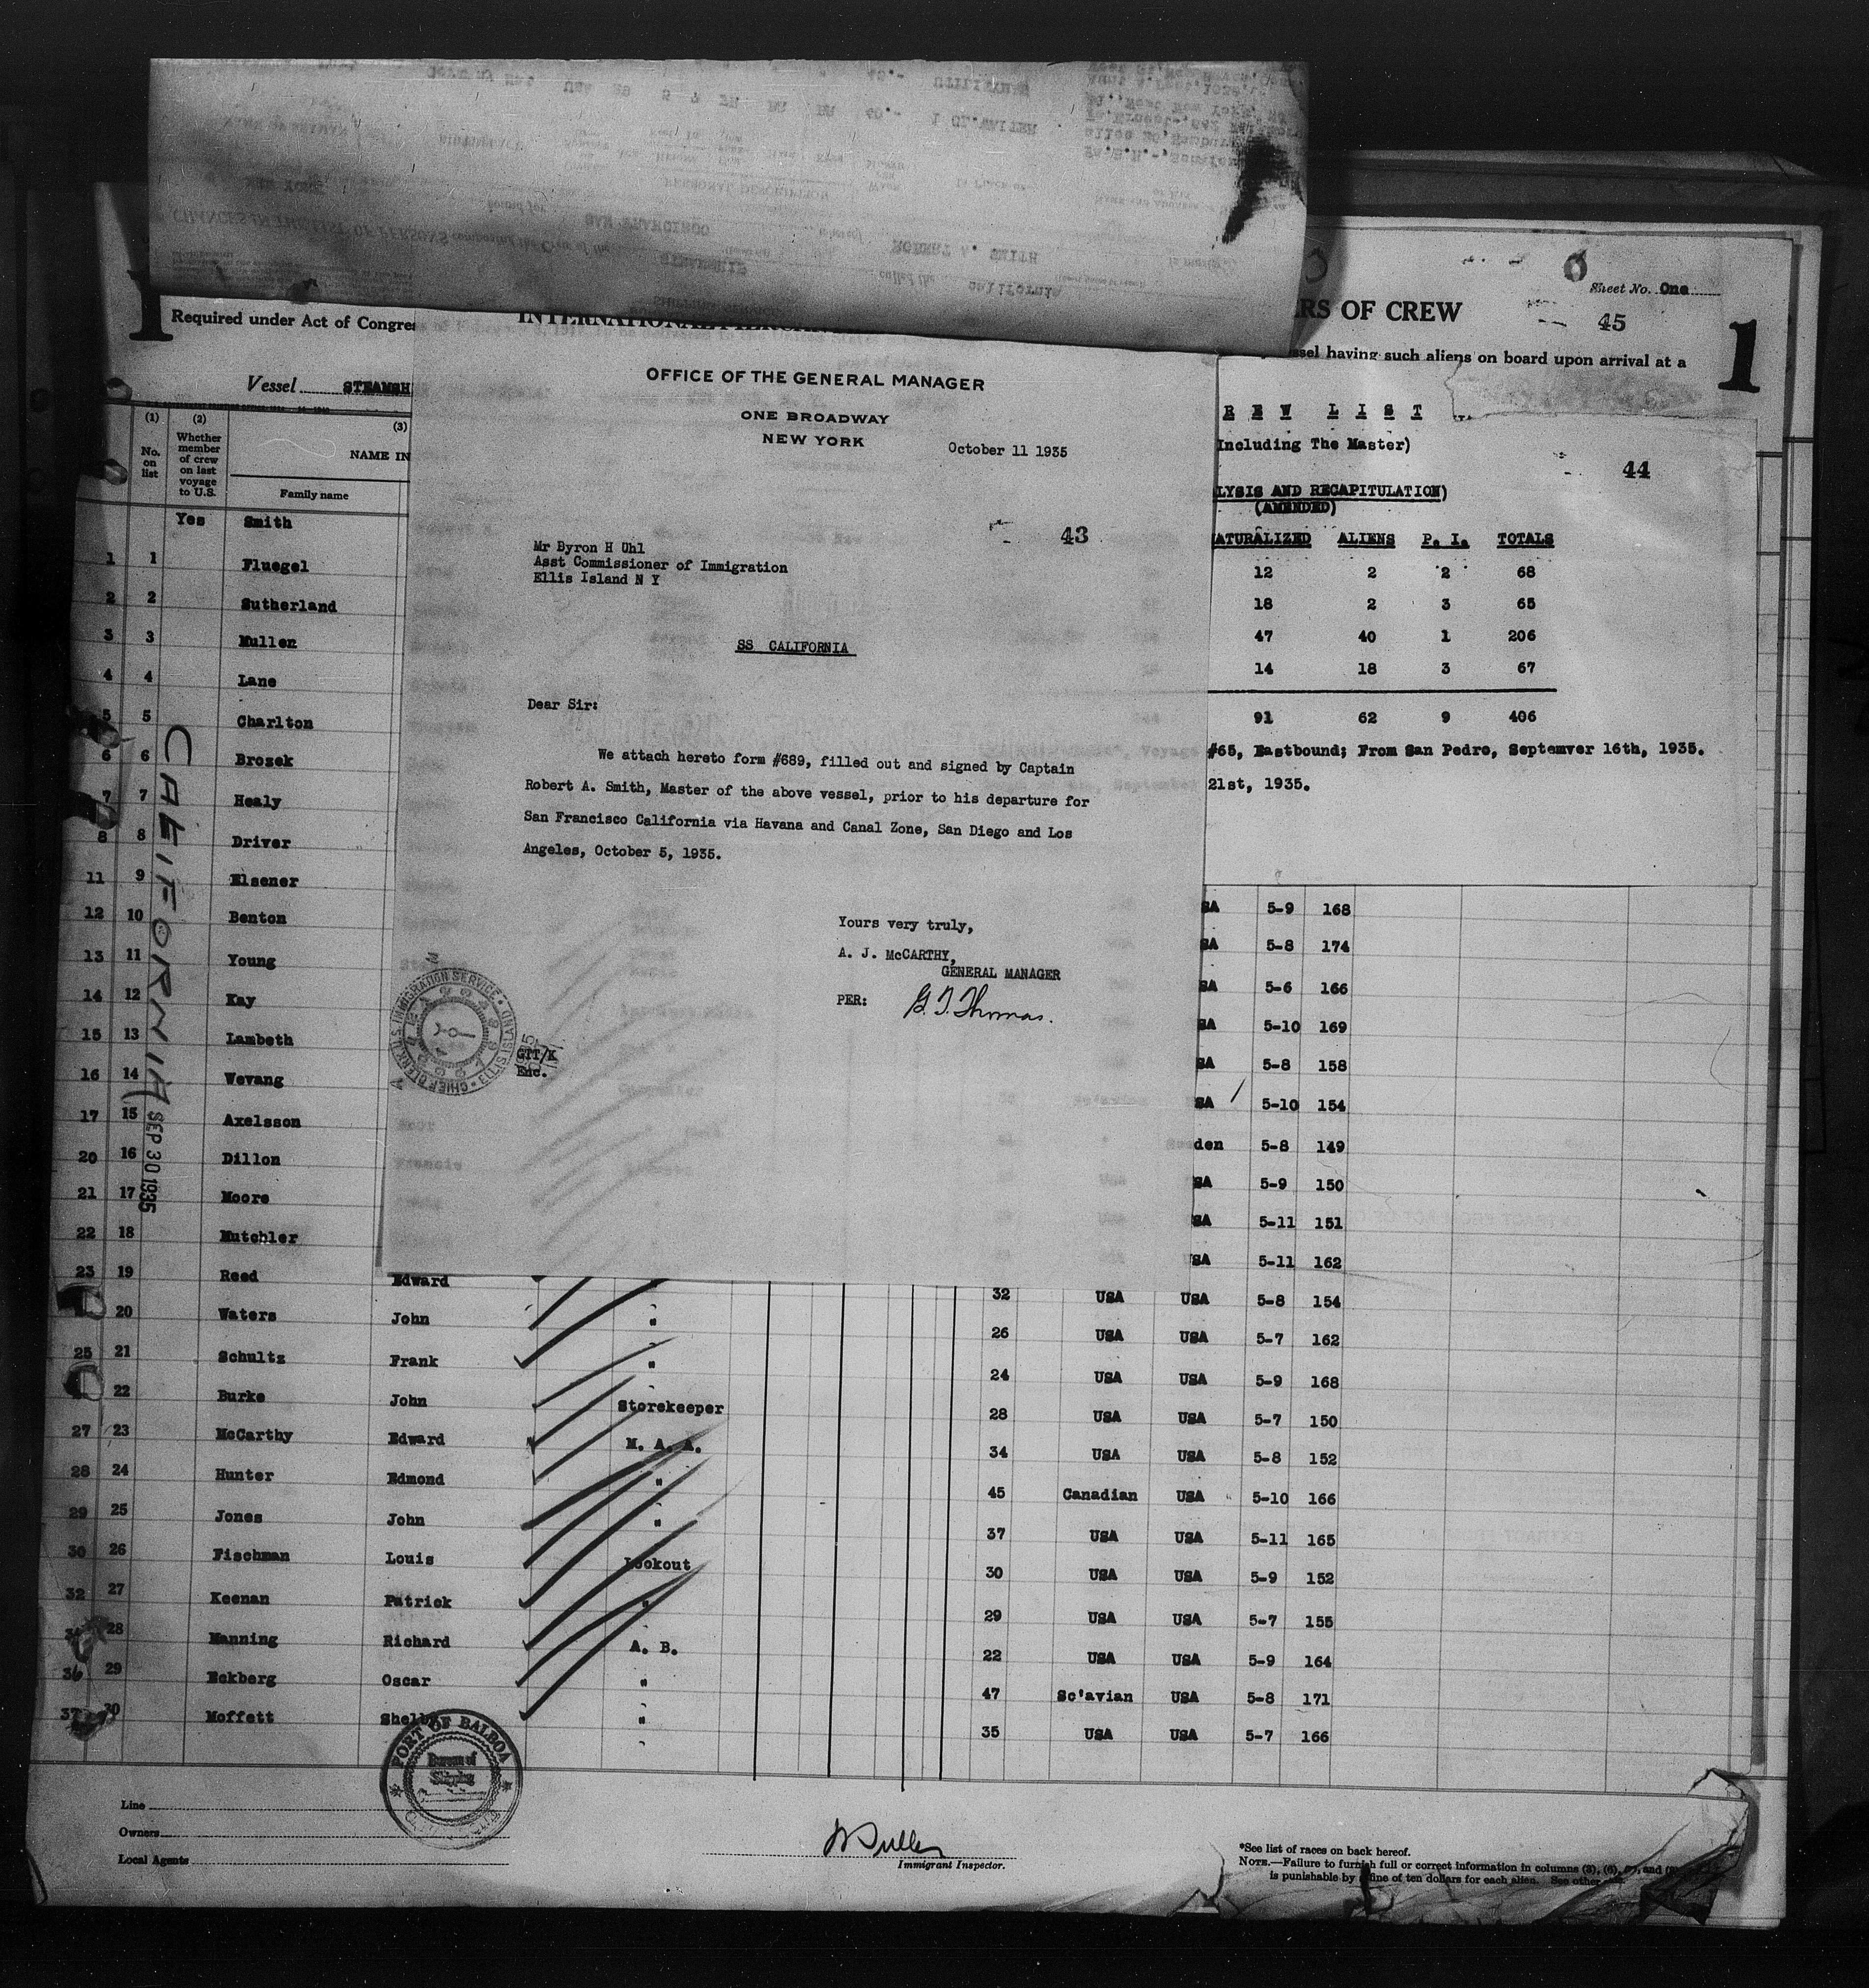 Sheet No. One
RS OF CREW
45
1
Required under Act of Congre
ssel having such aliens on board upon arrival at a
Vessel STEAMSH
(1) (2) (3)
No. on list
Whether member of crew on last voyage to U.S.
NAME IN
Family name
OFFICE OF THE GENERAL MANAGER
ONE BROADWAY
NEW YORK
October 11 1935
43
Mr Byron H Uhl
Asst Commissioner of Immigration
Ellis Island N Y
SS CALIFORNIA
Dear Sir:
We attach hereto form #689, filled out and signed by Captain
Robert A. Smith, Master of the above vessel, prior to his departure for
San Francisco California via Havana and Canal Zone, San Diego and Los
Angeles, October 5, 1935.
Yours very truly,
A. J. McCARTHY,
GENERAL MANAGER
PER: G. T. Thomas.
GTT/K
Enc.
CHIEF CLERK, U.S. IMMIGRATION SERVICE ELLIS ISLAND
R E W L I S T
Including The Master)
44
LYSIS AND RECAPITULATION)
(AMENDED)
ATURALIZED ALIENS P. I. TOTALS
12 2 2 68
18 2 3 65
47 40 1 206
14 18 3 67
91 62 9 406
#65, Eastbound; From San Pedro, Septemver 16th, 1935.
21st, 1935.
CALIFORNIA SEP 30 1935
Yes Smith
1 1 Fluegel
2 2 Sutherland
3 3 Mullen
4 4 Lane
5 5 Charlton
6 6 Brozek
7 7 Healy
8 8 Driver
11 9 Elsener
12 10 Benton
13 11 Young
14 12 Kay
15 13 Lambeth
16 14 Wevang
17 15 Axelsson
20 16 Dillon
21 17 Moore
22 18 Mutchler
SA 5-9 168
SA 5-8 174
SA 5-6 166
SA 5-10 169
SA 5-8 158
SA 5-10 154
den 5-8 149
SA 5-9 150
SA 5-11 151
SA 5-11 162
23 19 Reed Edward 32 USA USA 5-8 154
20 Waters John " 26 USA USA 5-7 162
25 21 Schultz Frank " 24 USA USA 5-9 168
22 Burke John Storekeeper 28 USA USA 5-7 150
27 23 McCarthy Edward M. A. A. 34 USA USA 5-8 152
28 24 Hunter Edmond " 45 Canadian USA 5-10 166
29 25 Jones John " 37 USA USA 5-11 165
30 26 Fischman Louis Lookout 30 USA USA 5-9 152
32 27 Keenan Patrick " 29 USA USA 5-7 155
28 Manning Richard A. B. 22 USA USA 5-9 164
36 29 Eckberg Oscar " 47 Sc'avian USA 5-8 171
37 30 Moffett Shelby " 35 USA USA 5-7 166
PORT OF BALBOA
Bureau of
Shipping
Line
Owners
Local Agents
Immigrant Inspector.
*See list of races on back hereof.
NOTE.—Failure to furnish full or correct information in columns (3), (6), (7), and
is punishable by a fine of ten dollars for each alien. See other
CHANGES IN THE LIST OF PERSONS composing the Crew of the
STEAMSHIP
called the California
ROBERT A. SMITH
is master,
SAN FRANCISCO
bound for
NEW YORK
PERSONAL DESCRIPTION